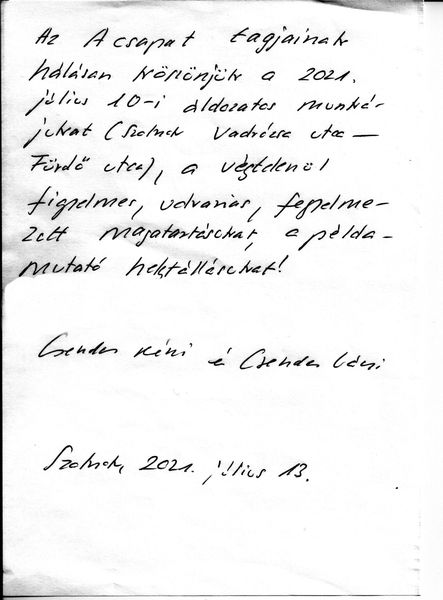 Az A csapat tagjainak
hálásan köszönjük a 2021.
július 10-i áldozatos munká-
jukat (Szolnok Vadrózsa utca –
Fürdő utca), a végtelenül
figyelmes, udvarias, fegyelme-
zett magatartásukat, a példa-
mutató helytállásukat!
Csendes néni és Csendes bácsi
Szolnok, 2021. július 13.